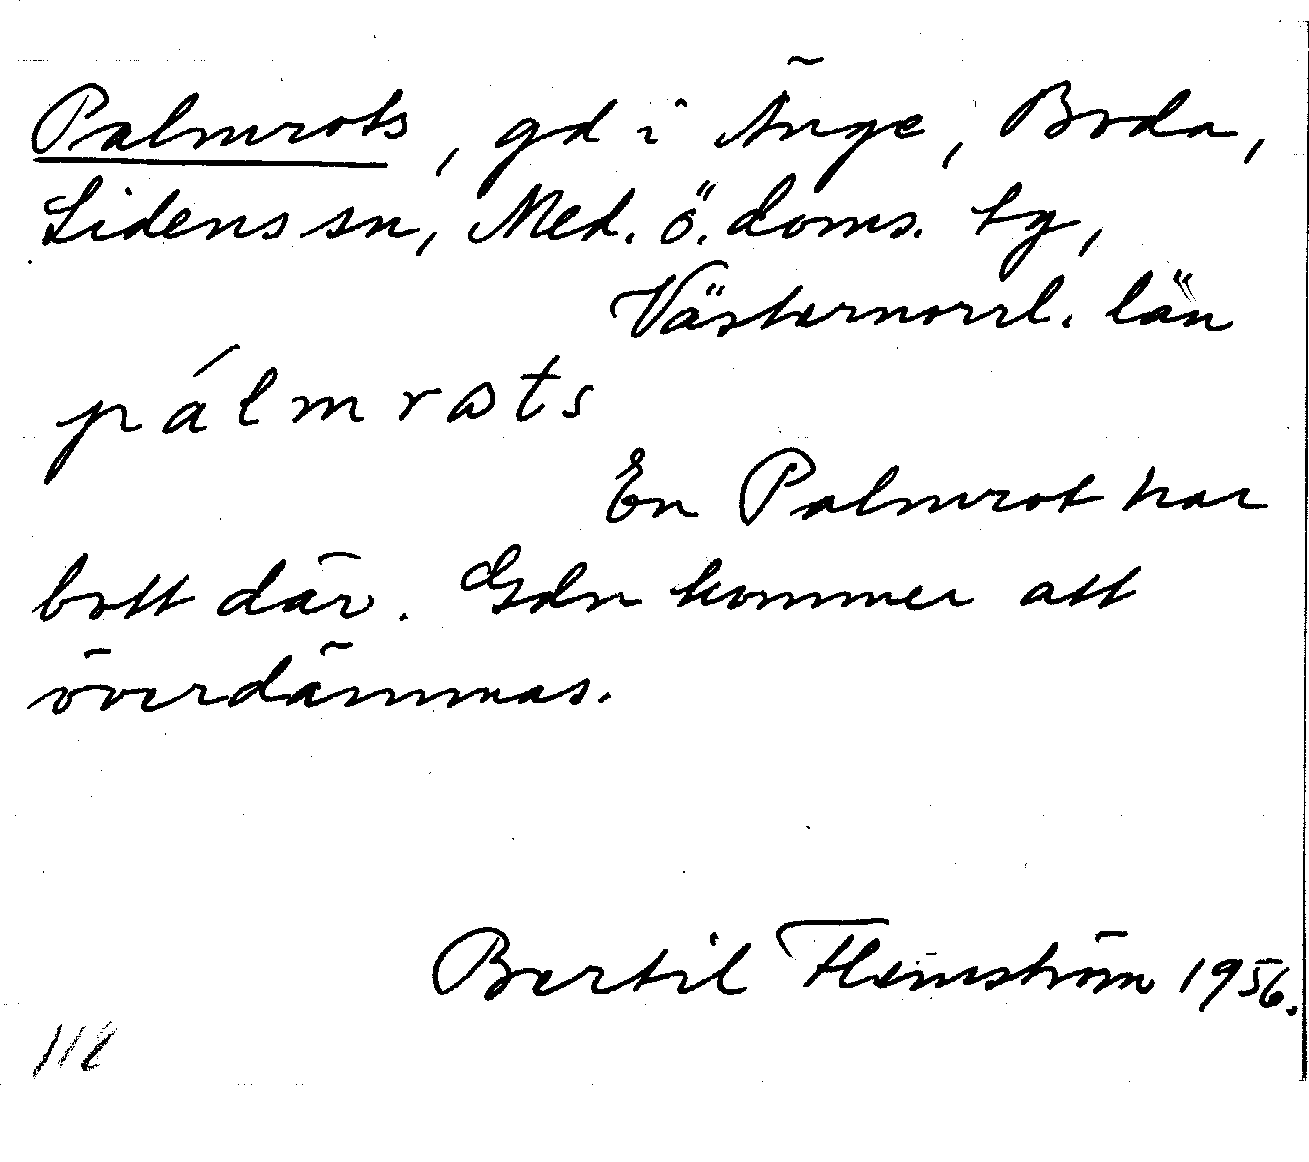 Palmrots, gd i Änge, Boda,
Lidens sn, Med. ö. doms. tg,
Västernorrl. län
pálmrωts
En Palmrot har
bott där. Gdn kommer att
överdämmas.
Bertil Flemström 1956.
118